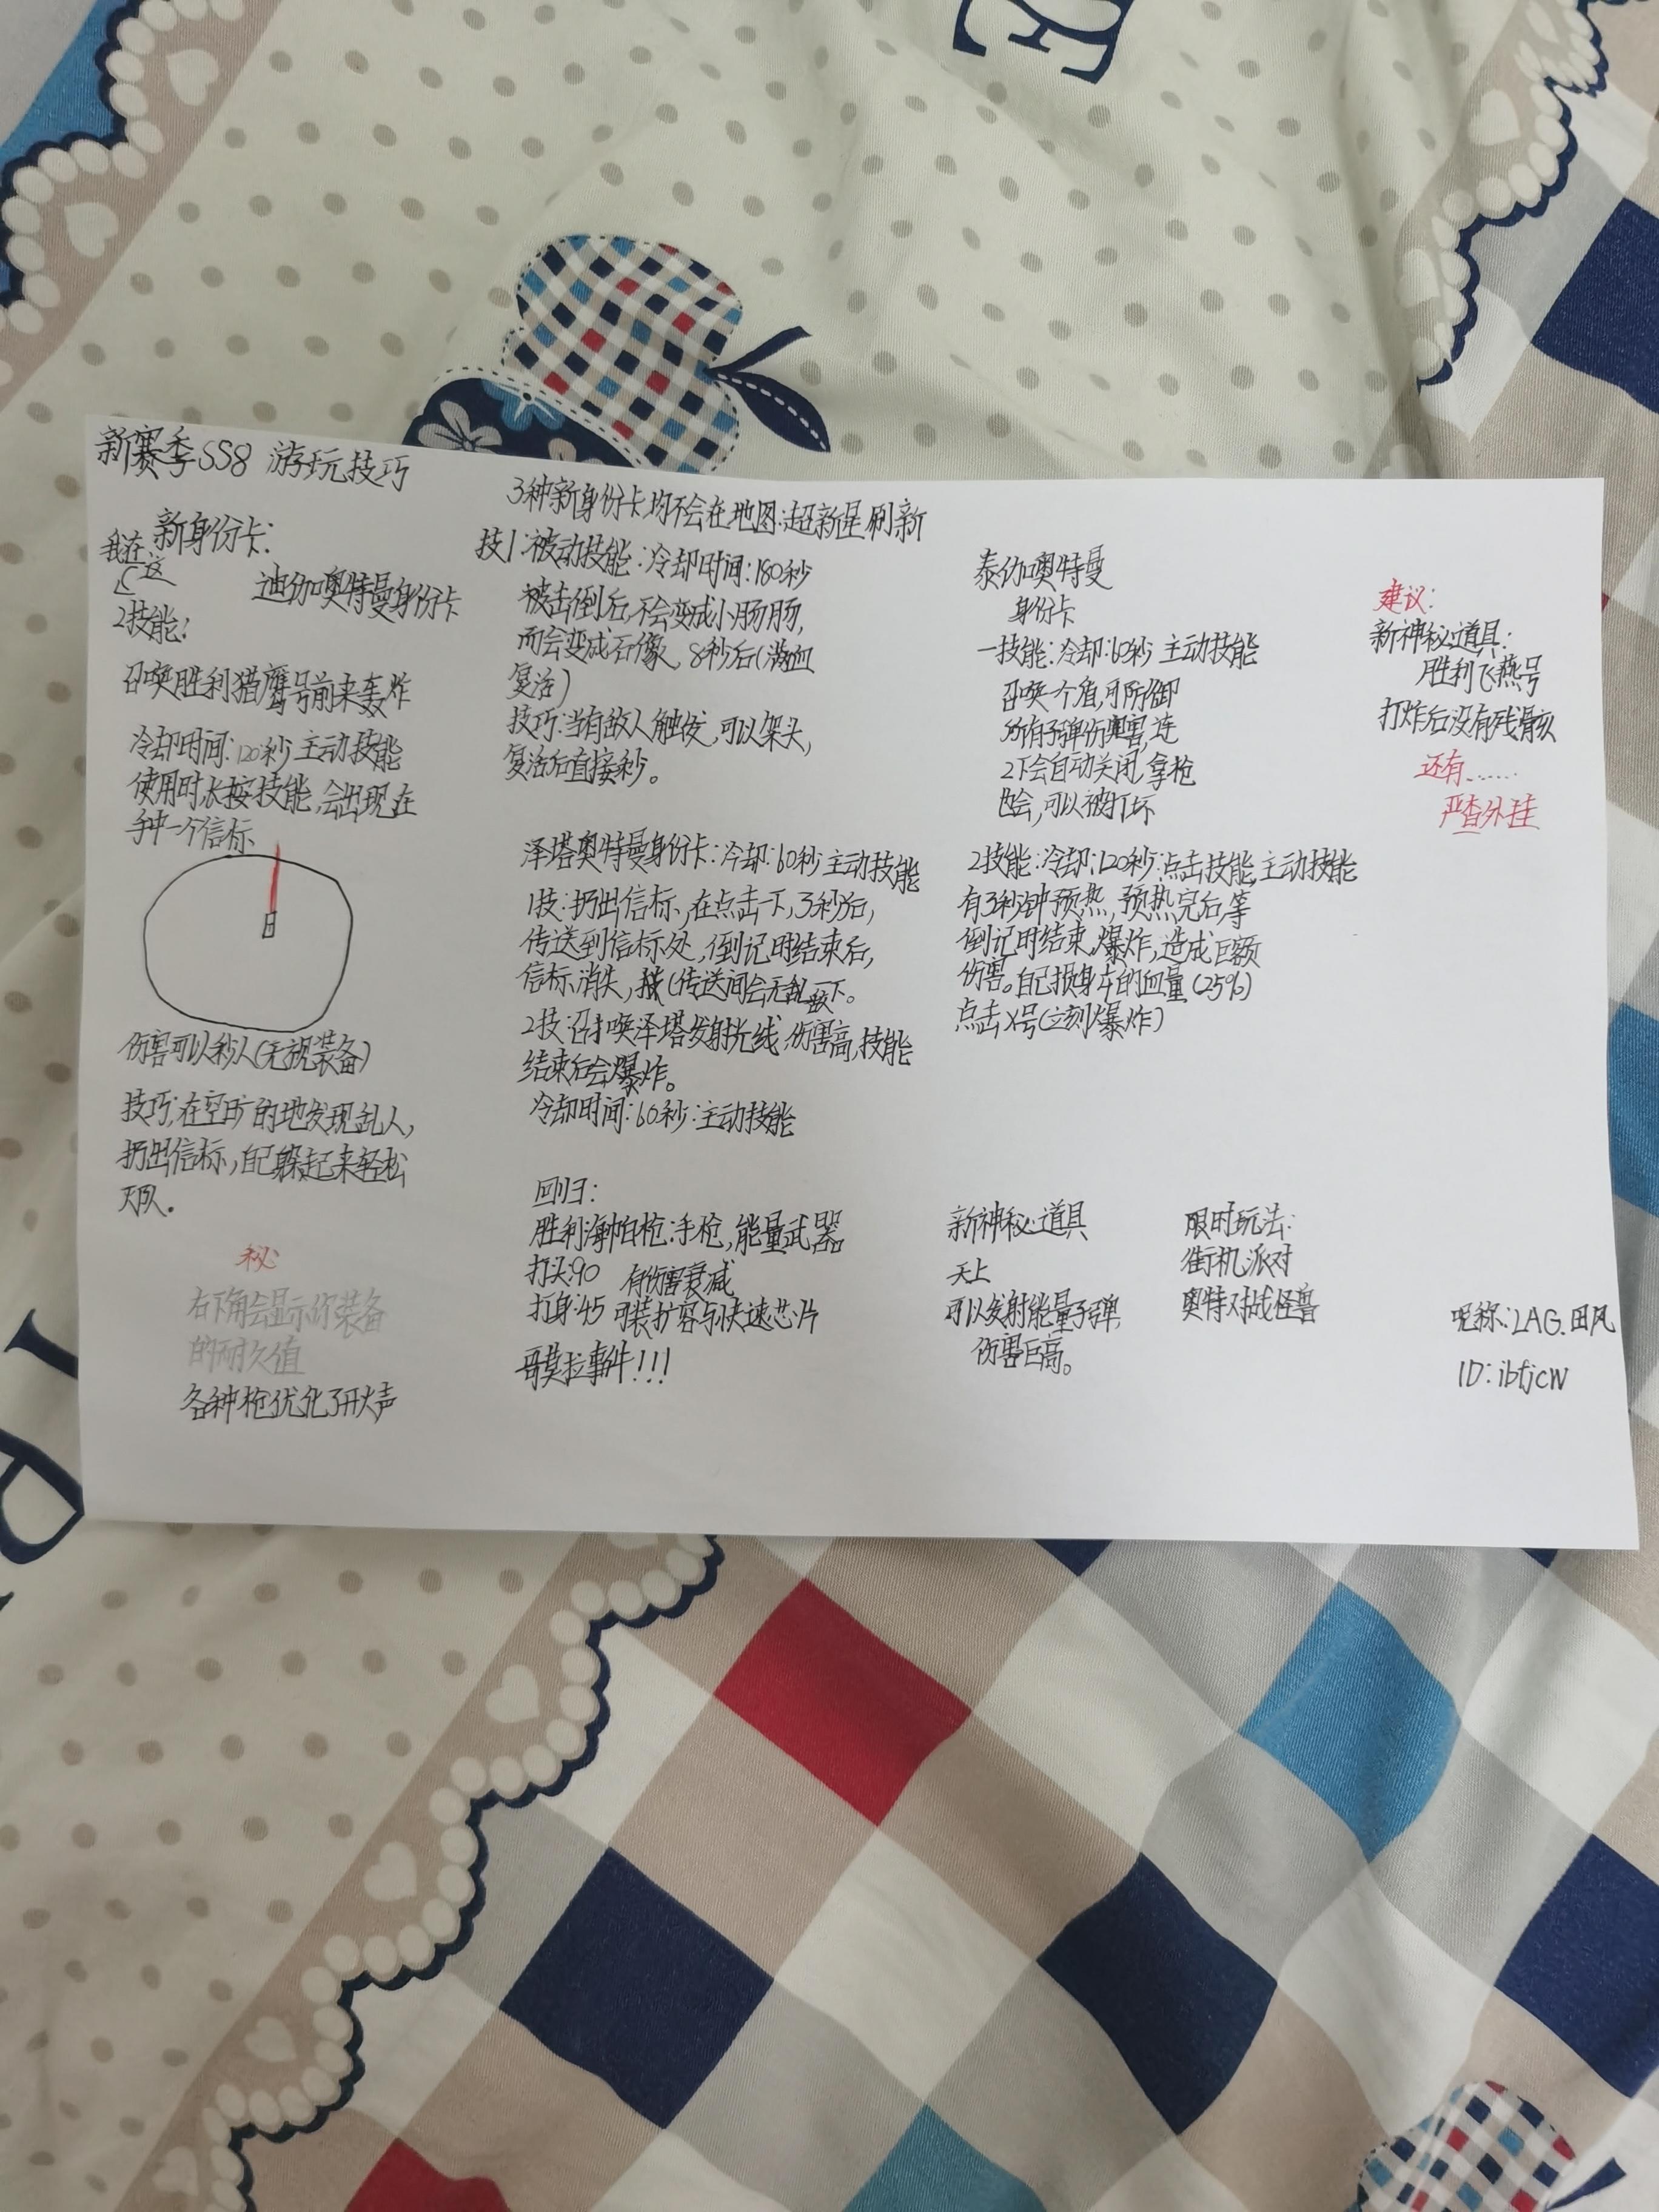 新赛季SS8 游玩技巧
新身份卡:
我在
这
迪伽奥特曼身份卡
2技能:
召唤胜利猎鹰号前来轰炸
冷却时间:120秒 主动技能
使用时,长按技能,会出现在
手中一个信标
伤害可以秒人(无视装备)
技巧:在空旷的地发现乱人,
扔出信标,自己躲起来轻松
灭队。
秘
右下角会显示你装备
的耐久值
各种枪优化了开火声
3种新身份卡均不会在地图:超新星刷新
技1:被动技能:冷却时间:180秒
被击倒后,不会变成小肠肠,
而会变成石像,8秒后(满血
复活)
技巧:当有敌人触发,可以架头,
复活后直接秒。
泽塔奥特曼身份卡:冷却:60秒主动技能
1技:扔出信标,在点击一下,3秒后,
传送到信标处,倒记时结束后,
信标消失,(传送间会无敌一下。
2技:召唤泽塔发射光线,伤害高,技能
结束后会爆炸。
冷却时间:60秒:主动技能
回归:
胜利海帕枪:手枪,能量武器
打头:90 有伤害衰减
打身:45 可装扩容与快速芯片
哥莫拉事件!!!
泰伽奥特曼
身份卡
一技能:冷却:60秒 主动技能
召唤一个盾,可防御
所有子弹伤害,连
2下会自动关闭,拿枪
也会,可以被打坏
2技能:冷却:120秒:点击技能,主动技能
有3秒钟预热,预热完后,等
倒记时结束,爆炸,造成巨额
伤害。自己损身上的血量(25%)
点击X号(立刻爆炸)
新神秘道具
天上
可以发射能量子弹,
伤害巨高。
限时玩法:
街机派对
奥特对战怪兽
建议:
新神秘道具:
胜利飞燕号
打炸后没有残骸
还有……
严查外挂
昵称:LAG.田风
ID:ibfjcw